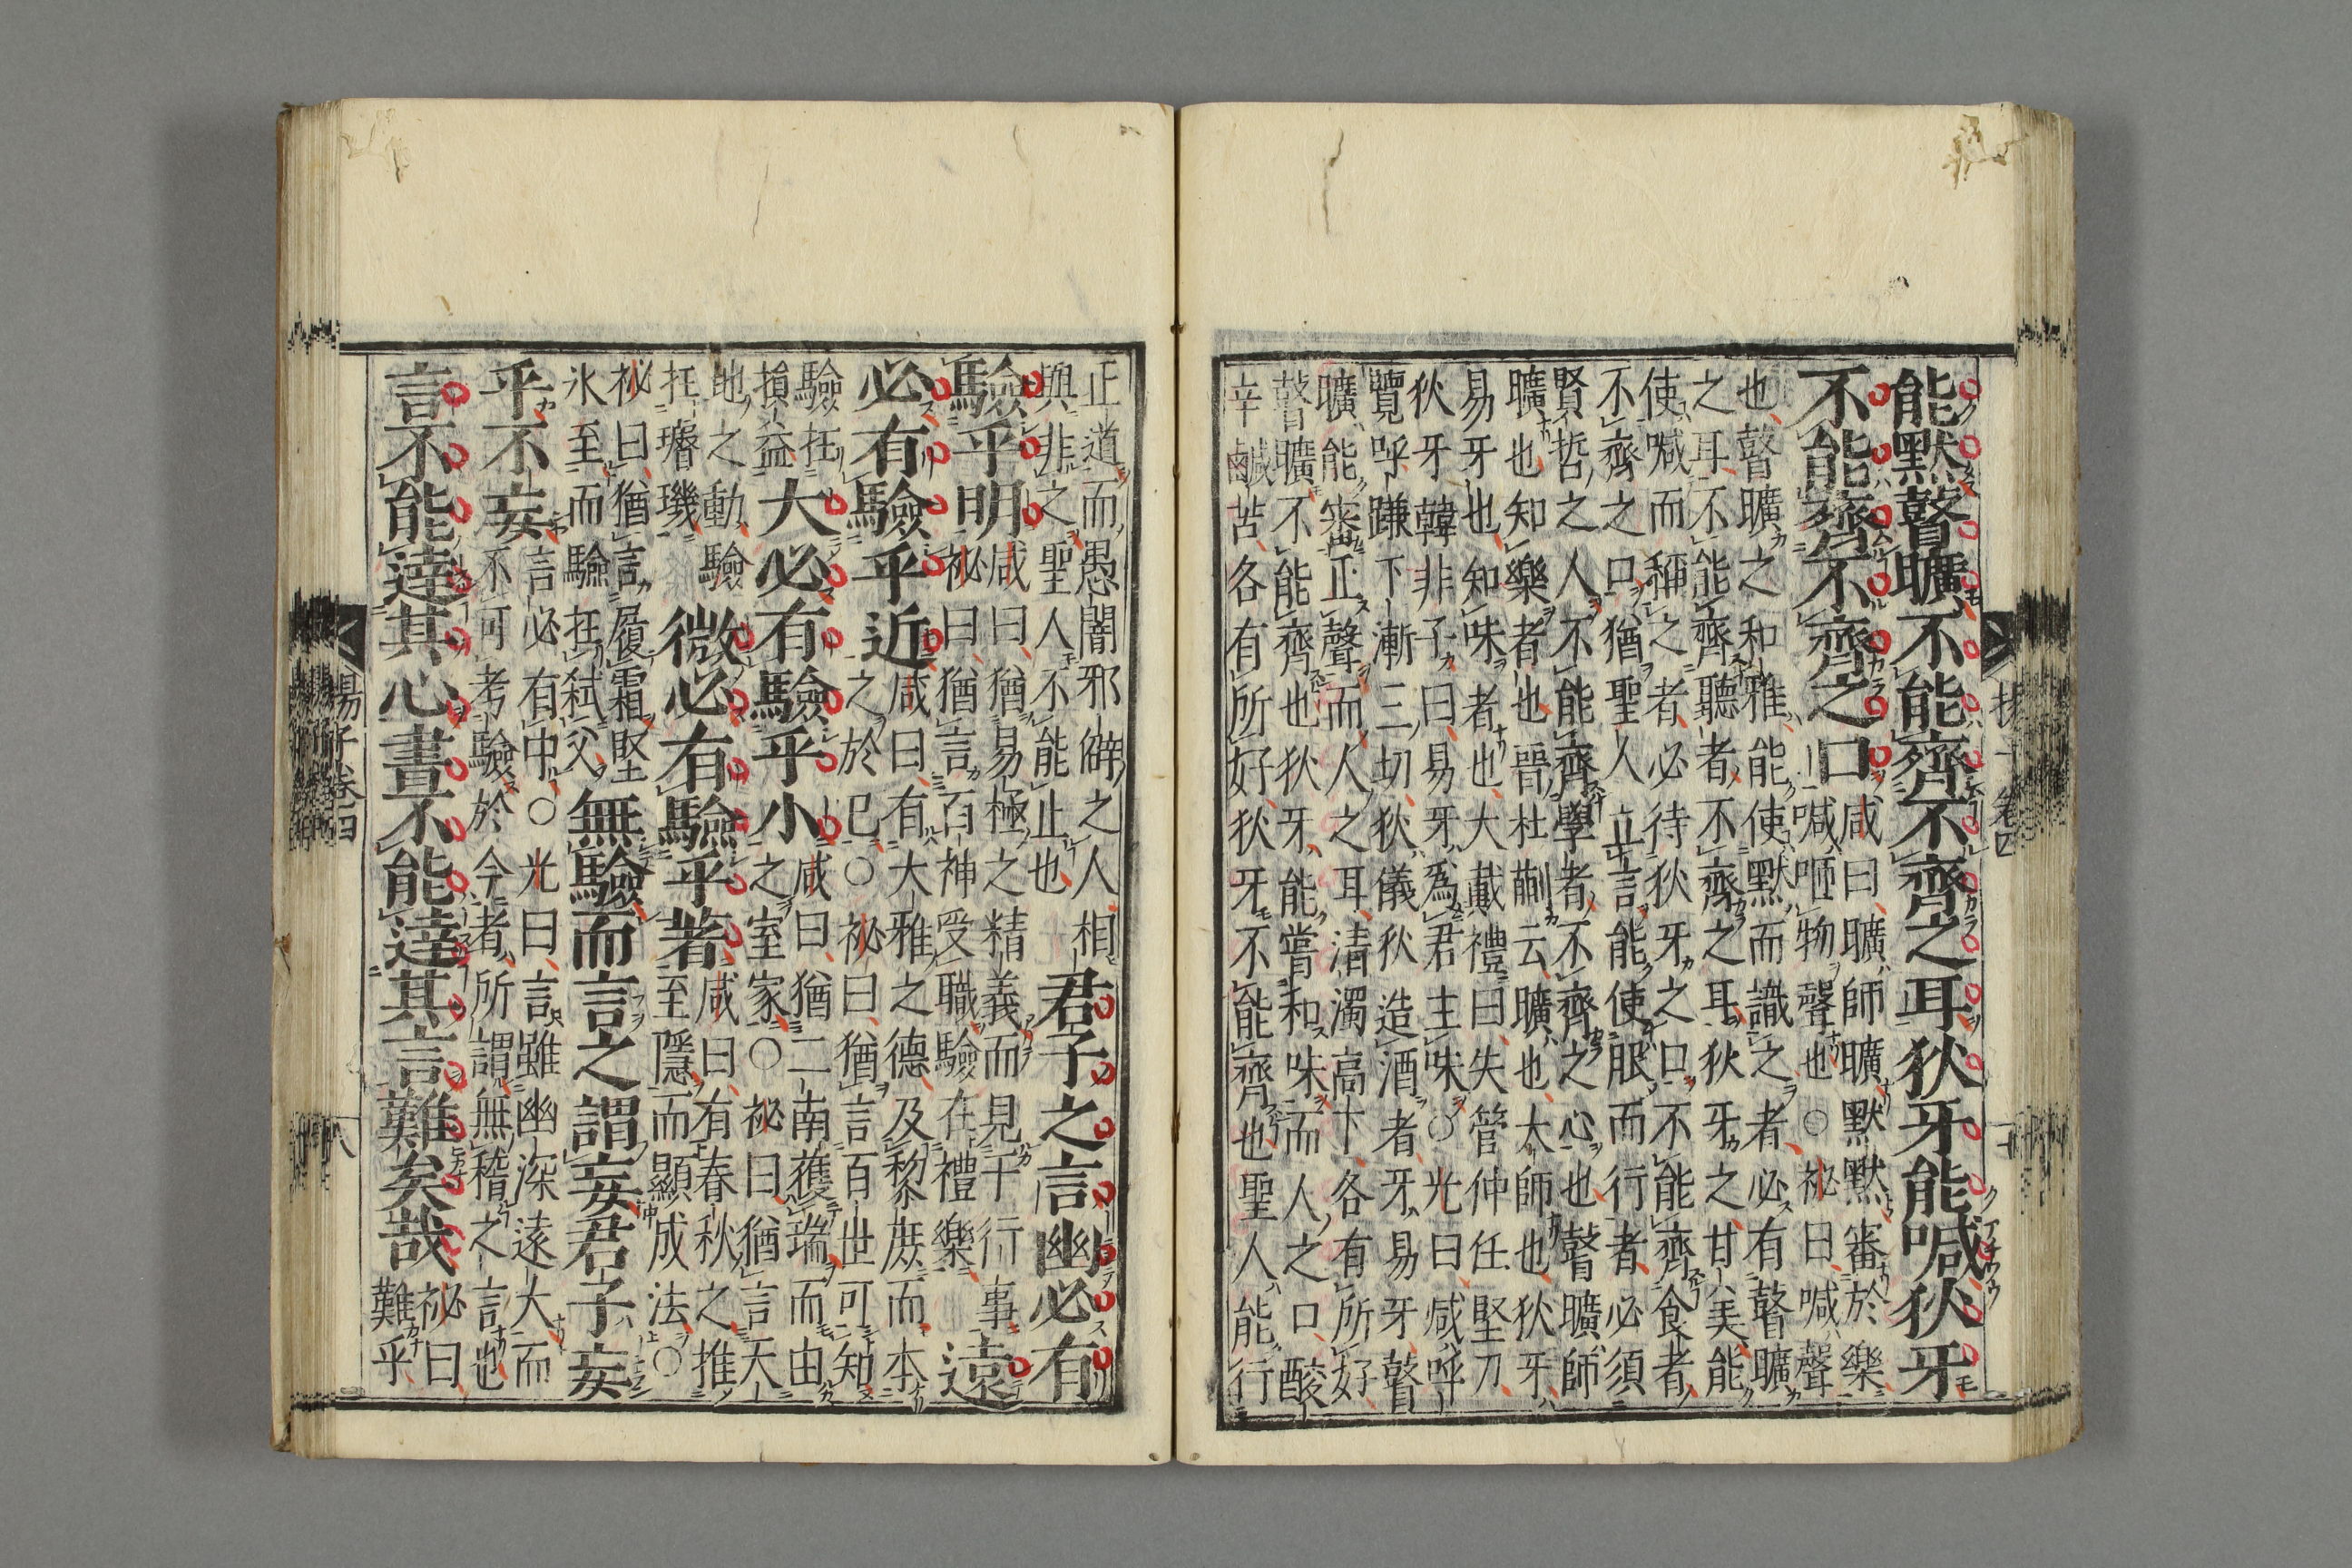 能默瞽曠不能齊不齊之耳狄牙能喊狄牙
不能齊不齊之口
咸曰曠師曠默默審於樂
喊咂物聲也○祕曰喊聲
也瞽曠之和雅能使默而識之者必有瞽曠
之耳不能齊聽者不齊之耳狄牙之甘美能
使喊而稱之者必待狄牙之口不能齊食者
不齊之口猶聖人立言能使服而行者必須
賢哲之人不能齊學者不齊之心也瞽曠師
曠也知樂者也晉杜蒯云曠也太師也狄牙
易牙也知味者也大戴禮曰失管仲任堅刀
狄牙韓非子曰易牙為君主味○光曰喊呼
覽呼蹥下漸三切狄儀狄造酒者牙易牙瞽
曠能審正聲而人之耳清濁高下各有所好
瞽曠不能齊也狄牙能嘗和味而人之口酸
辛鹹苦各有所好狄牙不能齊也聖人能行
正道而愚闇邪僻之人相
與非之聖人不能止也
君子之言幽必有
驗乎明
咸曰猶易極之精義而見于行事
祕曰猶言百神受職驗在禮樂
遠
必有驗乎近
咸曰有大雅之德及黎庶而本
之於已○祕曰猶言百世可知
驗在
損益
大必有驗乎小
咸曰猶二南蒦瑞而由
之室家○祕曰猶言天
地之動驗
在璿璣
微必有驗乎著
咸曰有春秋之推
至隱而顯成法○
祕曰猶言履霜堅
氷至而驗在弑父
無驗而言之謂妄君子妄
乎不妄
言必有中○光曰言雖幽深遠大而
不可考驗於今者所謂無稽之言也
言不能達其心書不能達其言難矣哉
祕曰
難乎
楊子卷四
八